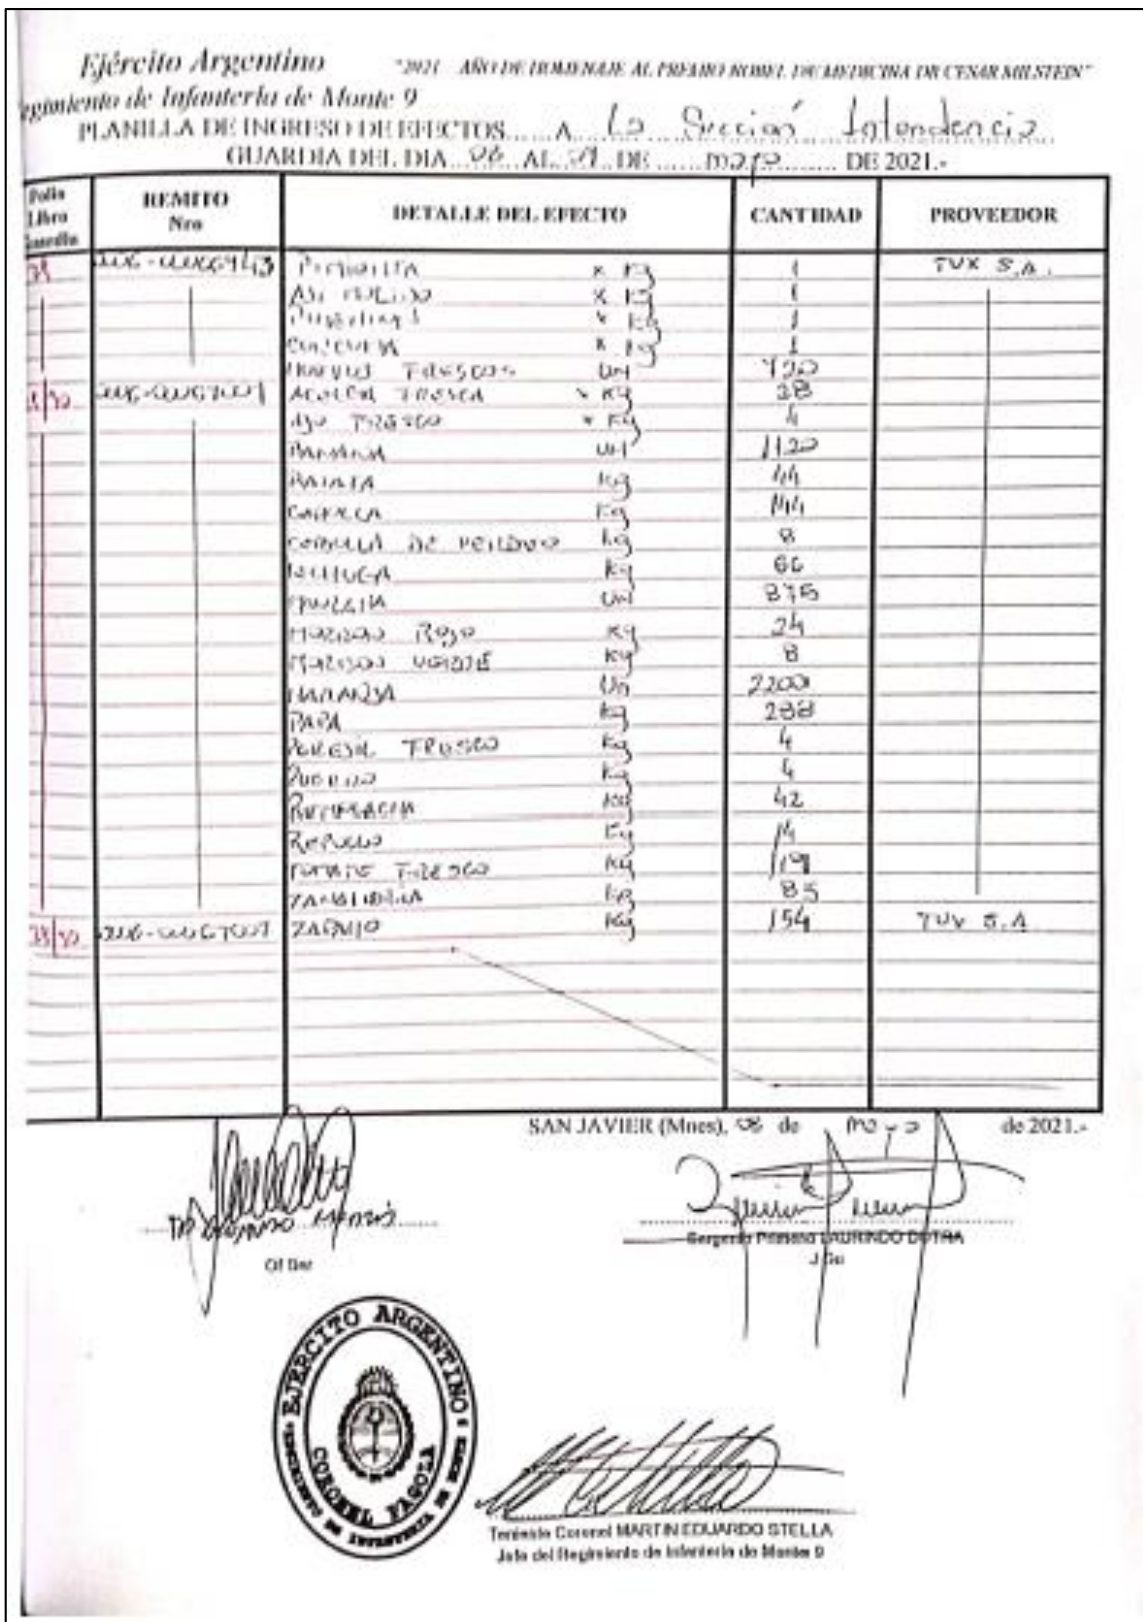 Ejército Argentino "2021 AÑO DE HOMENAJE AL PREMIO NOBEL DE MEDICINA DR CESAR MILSTEIN"
egimiento de Infantería de Monte 9
PLANILLA DE INGRESO DE EFECTOS...... A La Sección Intendencia
GUARDIA DEL DIA AL DE mayo DE 2021.-
Folio Libro Guardia REMITO Nro DETALLE DEL EFECTO CANTIDAD PROVEEDOR
Pimienta x Kg 1 TUX S.A.
Aji molido x Kg 1
x Kg 1
Curcuma x Kg 1
Huevos Frescos Un 720
Acelga Fresca x Kg 28
Ajo Fresco x Kg 4
Banana Un 1120
Batata Kg 44
Cebolla Kg 144
Cebolla de verdeo Kg 8
Lechuga Kg 66
Manzana Un 875
Morron Rojo Kg 24
Morron Verde Kg 8
Naranja Un 2200
Papa Kg 288
Perejil Fresco Kg 4
Puerro Kg 4
Remolacha Kg 42
Repollo Kg 14
Tomate Fresco Kg 119
Zanahoria Kg 85
Zapallo Kg 154 TUX S.A
SAN JAVIER (Mnes), 08 de mayo de 2021.-
Sargento Primero LAURINDO DUTRA
Of Ser
J Gu
EJERCITO ARGENTINO
REGIMIENTO DE INFANTERIA DE MONTE 9
CORONEL PAGOLA
Teniente Coronel MARTIN EDUARDO STELLA
Jefe del Regimiento de Infantería de Monte 9